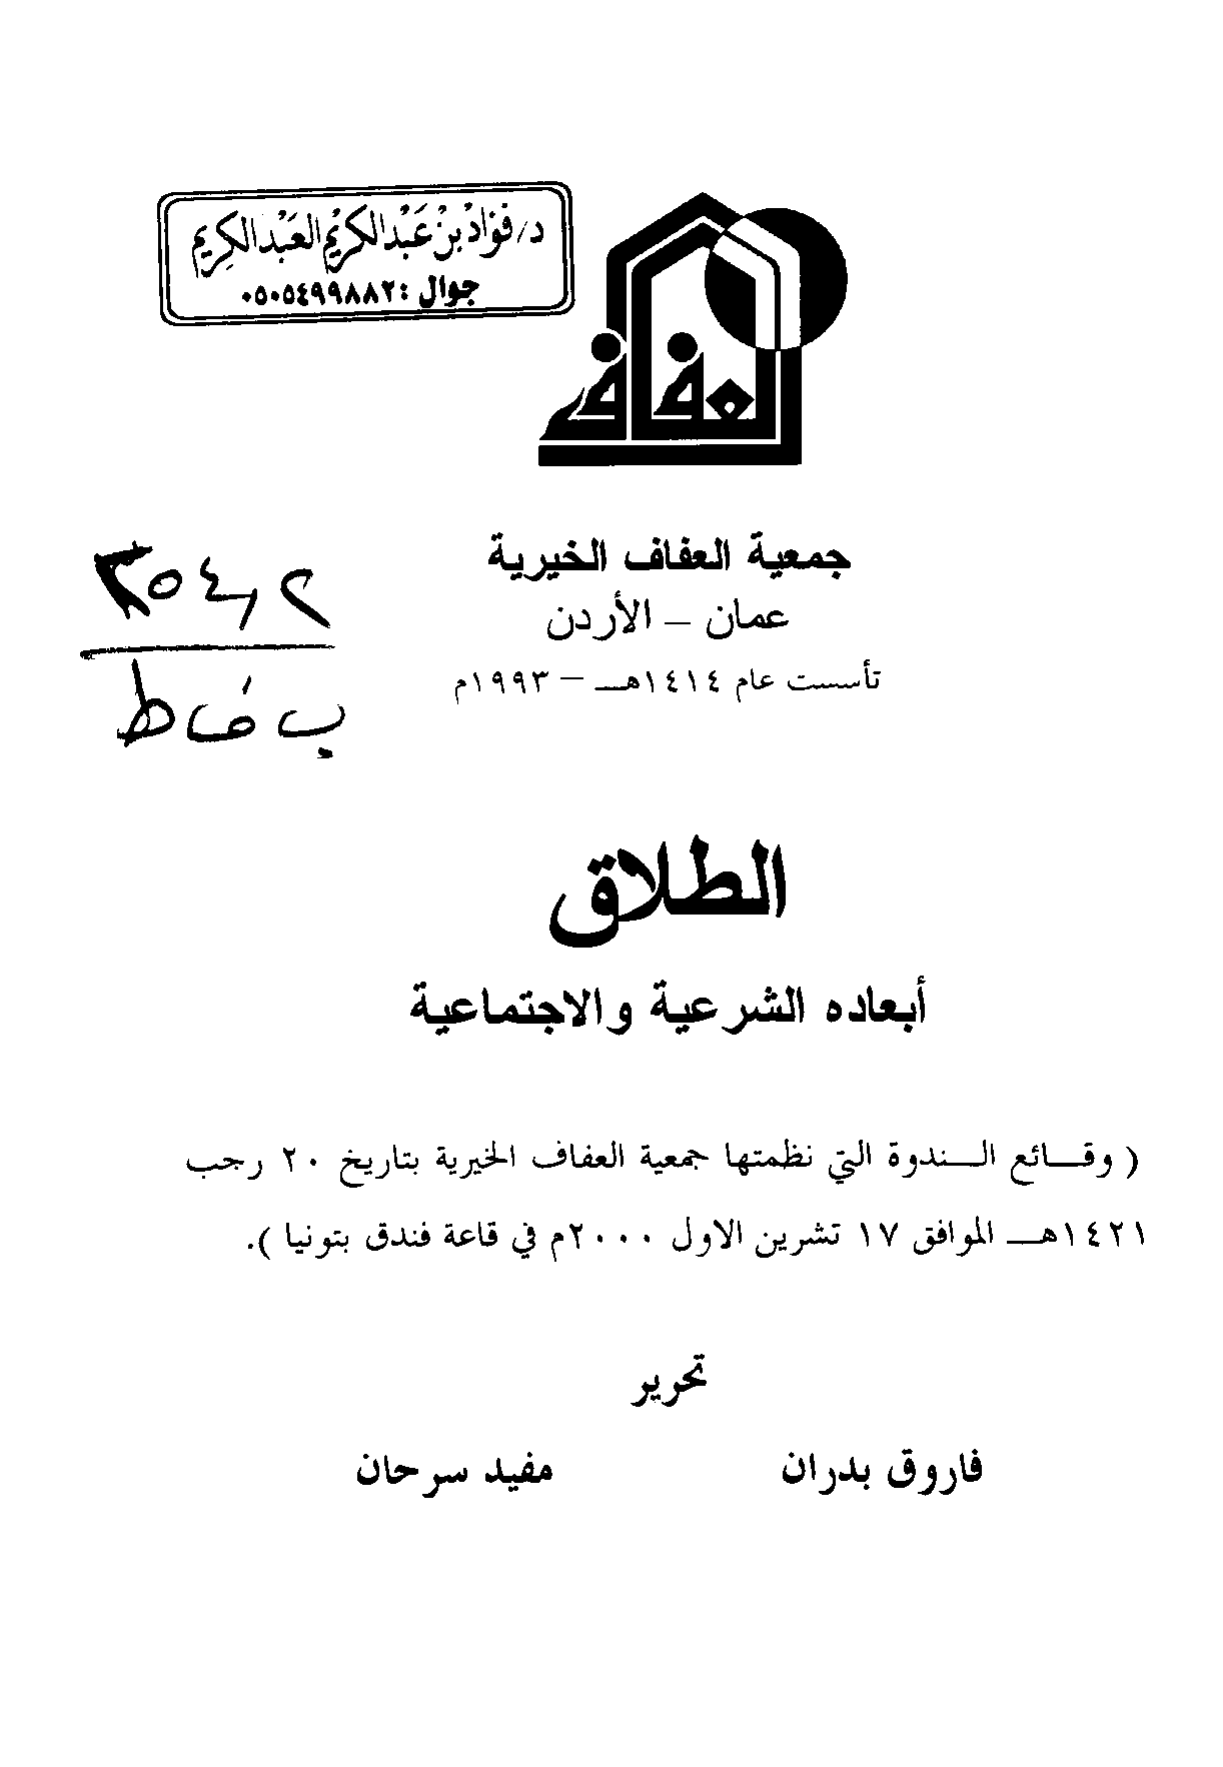 د/فؤاد بن عَبْدالكريْم العَبْدالكِريم
جوال :٠٥٠٥٤٩٩٨٨٢
العفاف
جمعية العفاف الخيرية
عمان – الأردن
تأسست عام ١٤١٤هـــ – ١٩٩٣م
الطلاق
أبعاده الشرعية والاجتماعية
( وقــائع الــندوة التي نظمتها جمعية العفاف الخيرية بتاريخ ٢٠ رجب
١٤٢١هــ الموافق ١٧ تشرين الاول ٢٠٠٠م في قاعة فندق بتونيا ).
تحرير
فاروق بدران
مفيد سرحان